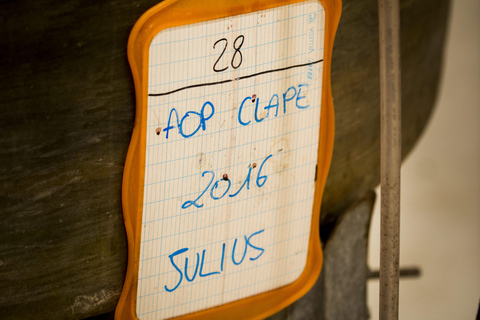 28
AOP CLAPE
2016
JULIUS